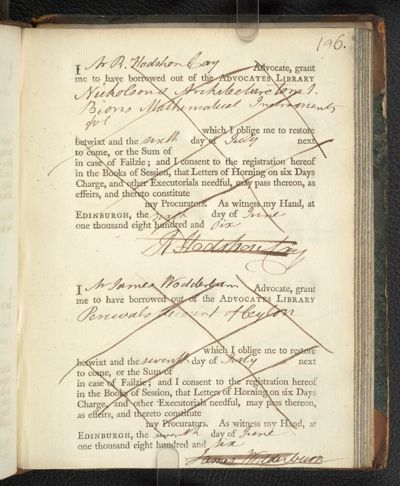 196.
I Mr R. Hodshon Cay Advocate, grant
me to have borrowed out of the ADVOCATES LIBRARY
Nicholsons Architecture vol 1.
Bions Mathematical Instruments
fol
which I oblige me to restore
betwixt and the sixth day of July next
to come, or the Sum of
in case of Failzie; and I consent to the registration hereof
in the Books of Session, that Letters of Horning on six Days
Charge, and other Executorials needful, may pass thereon, as
effeirs, and thereto constitute
my Procurators. As witness my Hand, at
EDINBURGH, the sixth day of June
one thousand eight hundred and six
R Hodshon Cay
I Mr James Wedderburn Advocate, grant
me to have borrowed out of the ADVOCATES LIBRARY
Percivals Account of Ceylon
which I oblige me to restore
betwixt and the seventh day of July next
to come, or the Sum of
in case of Failzie; and I consent to the registration hereof
in the Books of Session, that Letters of Horning on six Days
Charge, and other Executorials needful, may pass thereon,
as effeirs, and thereto constitute
my Procurators. As witness my Hand, at
EDINBURGH, the seventh day of June
one thousand eight hundred and six
James Wedderburn